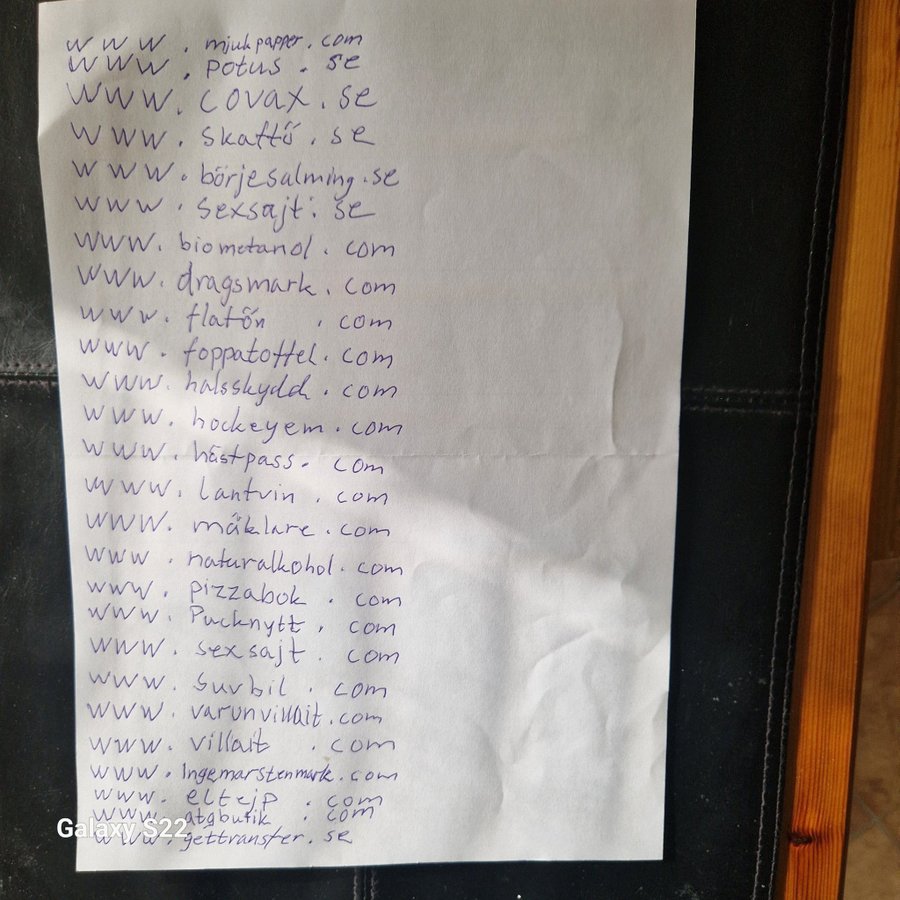 www.mjukpapper.com
www.potus.se
www.covax.se
www.skattö.se
www.börjesalming.se
www.sexsajt.se
www.biometanol.com
www.dragsmark.com
www.flatön.com
www.foppatoffel.com
www.halsskydd.com
www.hockeyem.com
www.hästpass.com
www.lantvin.com
www.mäklare.com
www.naturalkohol.com
www.pizzabok.com
www.Pucknytt.com
www.sexsajt.com
www.suvbil.com
www.varunvillait.com
www.villait.com
www.Ingemarstenmark.com
www.eltejp.com
www.atgbutik.com
www.gettransfer.se
Galaxy S22